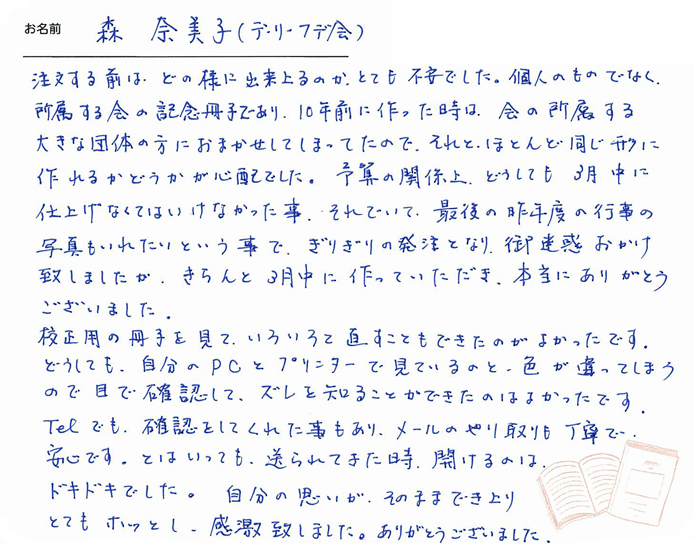 お名前 森 奈美子(デ・リーフデ会)
注文する前は、どの様に出来上るのか、とても不安でした。個人のものでなく、
所属する会の記念冊子であり、10年前に作った時は、会の所属する
大きな団体の方におまかせしてしまってたので、それと、ほとんど同じ形に
作れるかどうかが心配でした。予算の関係上、どうしても3月中に
仕上げなくてはいけなかった事、それでいて、最後の昨年度の行事の
写真もいれたいという事で、ぎりぎりの発注となり、御迷惑おかけ
致しましたが、きちんと3月中に作っていただき、本当にありがとう
ございました。
校正用の冊子を見て、いろいろと直すこともできたのがよかったです。
どうしても、自分のPCとプリンターで見ているのと、色が違ってしまう
ので目で確認して、ズレを知ることができたのはよかったです。
Telでも、確認をしてくれた事もあり、メールのやり取りも丁寧で、
安心です。とはいっても、送られてきた時、開けるのは、
ドキドキでした。 自分の思いが、そのままでき上り
とてもホッとし、感激致しました。ありがとうございました。